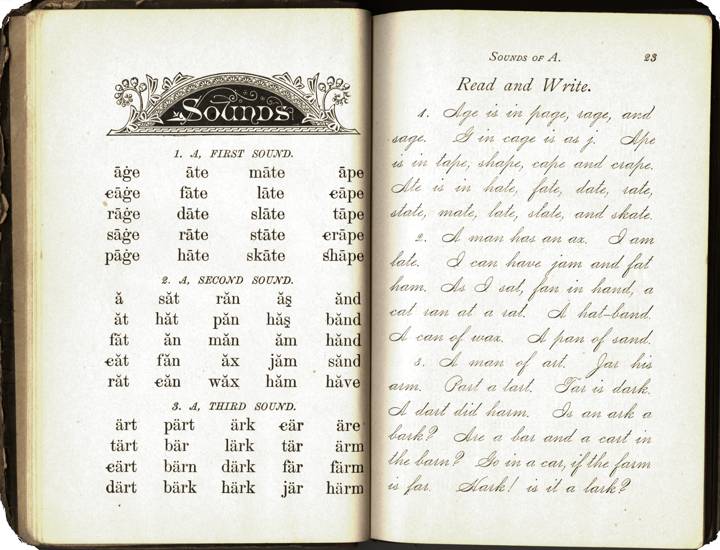 Sounds
1. A, FIRST SOUND.
āġe āte māte āpe
cāġe fāte lāte cāpe
rāġe dāte slāte tāpe
sāġe rāte stāte crāpe
pāġe hāte skāte shāpe
2. A, SECOND SOUND.
ă săt răn ăs̱ ănd
ăt hăt păn hăs̱ bănd
făt ăn măn ăm hănd
căt făn ăx jăm sănd
răt căn wăx hăm hăve
3. A, THIRD SOUND.
ärt pärt ärk cär äre
tärt bär lärk tär ärm
cärt bärn därk fär färm
därt bärk härk jär härm
SOUNDS OF A. 23
Read and Write.
1. Age is in page, rage, and
sage. G in cage is as j. Ape
is in tape, shape, cape and crape.
Ate is in hate, fate, date, rate,
state, mate, late, slate, and skate.
2. A man has an ax. I am
late. I can have jam and fat
ham. As I sat, fan in hand, a
cat ran at a rat. A hat-band.
A can of wax. A pan of sand.
3. A man of art. Jar his
arm. Part a tart. Tar is dark.
A dart did harm. Is an ark a
bark? Are a bar and a cart in
the barn? Go in a car, if the farm
is far. Hark! is it a lark?